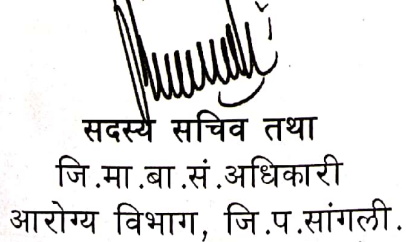 सदस्य सचिव तथा
जि.मा.बा.सं.अधिकारी
आरोग्य विभाग, जि.प.सांगली.